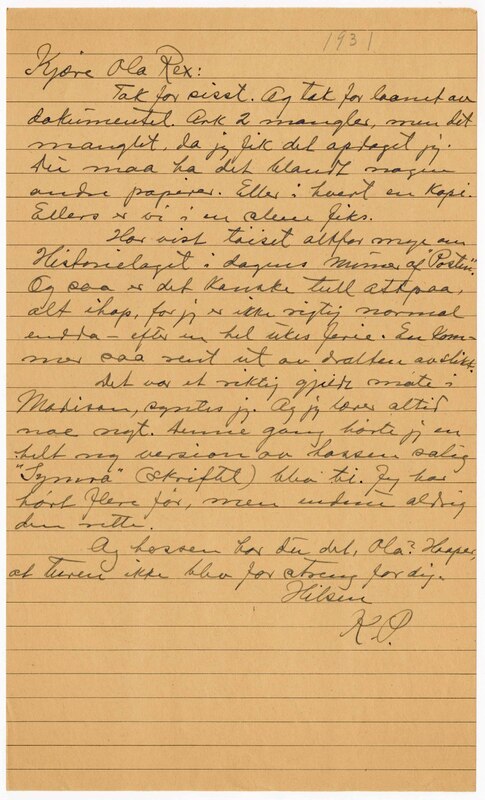 1931
Kjære Ola Rex:
Tak for sisst. Og tak for laanet av
dokumentet. Ark 2 mangler, men det
manglet, da jeg fik det opdaget jeg.
Du maa ha det blandt nogen
andre papirer. Eller i hvert en kopi.
Ellers er vi i en slem fiks.
Har vist tøiset altfor mye om
Historielaget i dagens numer af "Posten".
Og saa er det kanske tull atpaa,
alt ihop, for jeg er ikke rigtig normal
endda – efter en hel ukes ferie. En kom-
mer saa rent ut av dratten av slikt.
Det var et riktig gjildt møte i
Madison, syntes jeg. Og jeg lærer altid
noe nyt. Denne gang hørte jeg en
helt ny version av hossen salig
"Symra" (skriftet) blev til. Jeg har
hørt flere før, men endnu aldrig
den rette.
Og hossen har du det, Ola? Haaper,
at turen ikke blev for streng for dig.
Hilsen
K.P.